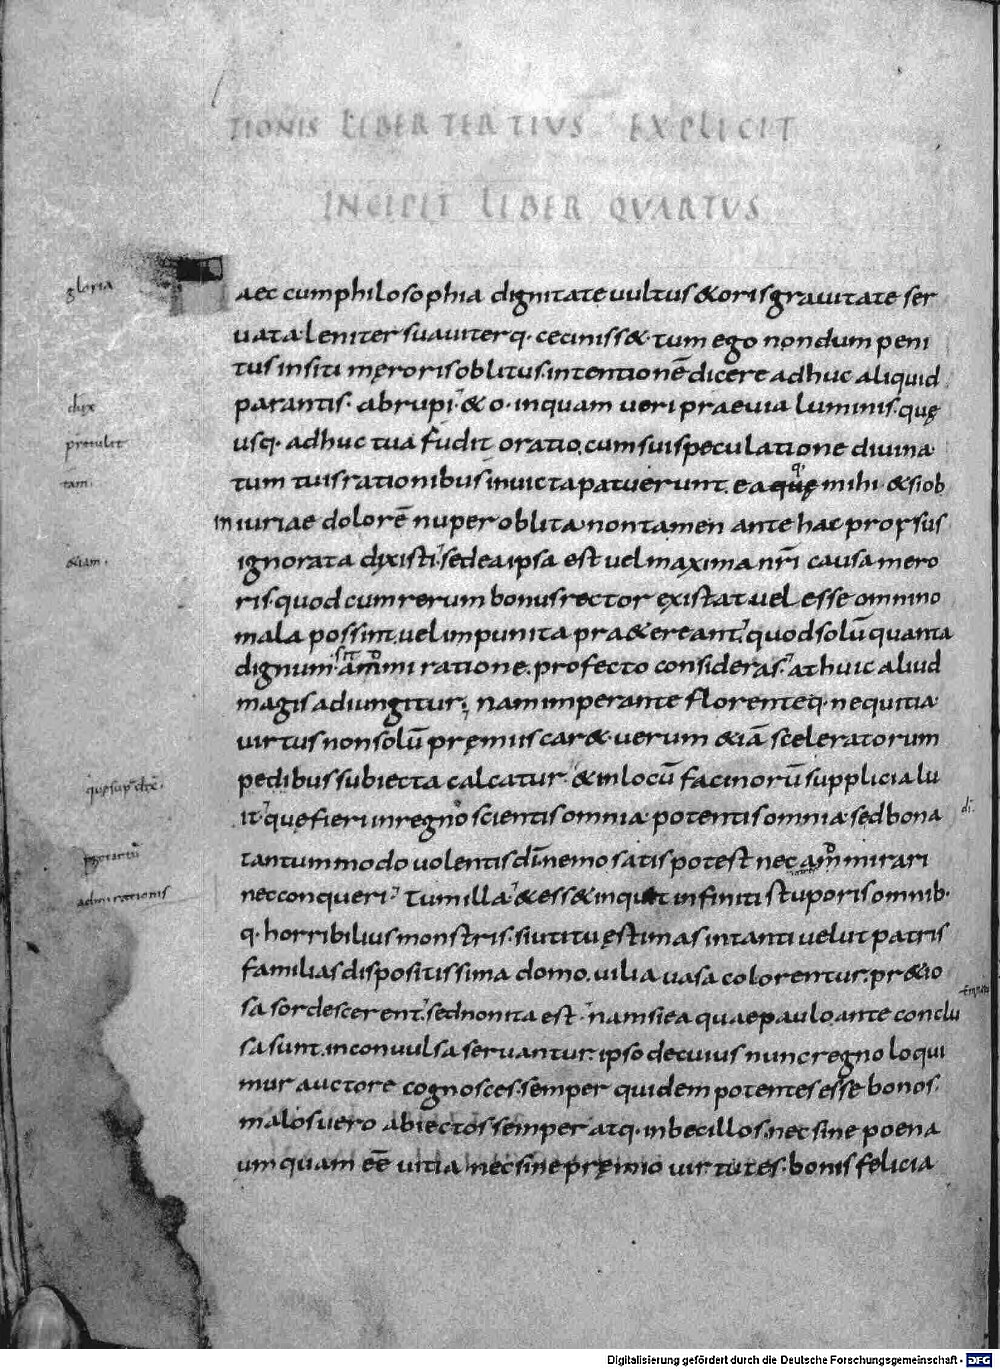 TIONIS LIBER TERTIVS EXPLICIT
INCIPIT LIBER QVARTVS
gloria
aec cum philosophia dignitate uultus & oris grauitate ser
uata leniter suauiterq· cecinisset· tum ego nondum peni
tus insiti męroris oblitus· intentionē dicere adhuc aliquid
dux
parantis· abrupi· & o· inquam ueri praeuia luminis· quę
protulit
usq· adhuc tua fudit oratio, cum sui speculatione diuina
tam·
tum tuis rationibus inuicta patuerunt. eaquę mihi· & si ob
iniuriae dolorē nuper oblita· non tamen ante hac prorsus
&iam·
ignorata dixisti· sed ea ipsa est uel maxima nrī causa mero
ris quod cum rerum bonus rector existat uel esse omnino
mala possint, uel impunita praetereant, quod solū quanta
dignum sit āmmi ratione. profecto consideras· at huic aliud
magis adiungitur; nam imperante florenteq· nequitia·
uirtus non solū pręmiis caret· uerum &iā sceleratorum
pedibus subiecta calcatur· & in locū facinorū supplicia lu
it· que fieri in regno scientis omnia· potentis omnia· sed bona
di·
tantummodo uolentis dī nemo satis potest nec ammirari
admirationis
nec conqueri· Tum illa· & esset inquit infiniti stuporis omnib·
q· horribilius monstris· si uti tu ęstimas in tanti uelut patris
familias dispositissima domo. uilia uasa colorentur. pretio
sa sordescerent, sed non ita est· nam si ea quae paulo ante conclu
sa sunt. inconuulsa seruantur. ipso de cuius nunc regno loqui
mur auctore cognosces. semper quidem potentes esse bonos·
malos uero abiectos semper atq· inbecillos, nec sine poena
umquam eē uitia· nec sine pręmio uirtutes· bonis felicia
Digitalisierung gefördert durch die Deutsche Forschungsgemeinschaft - DFG